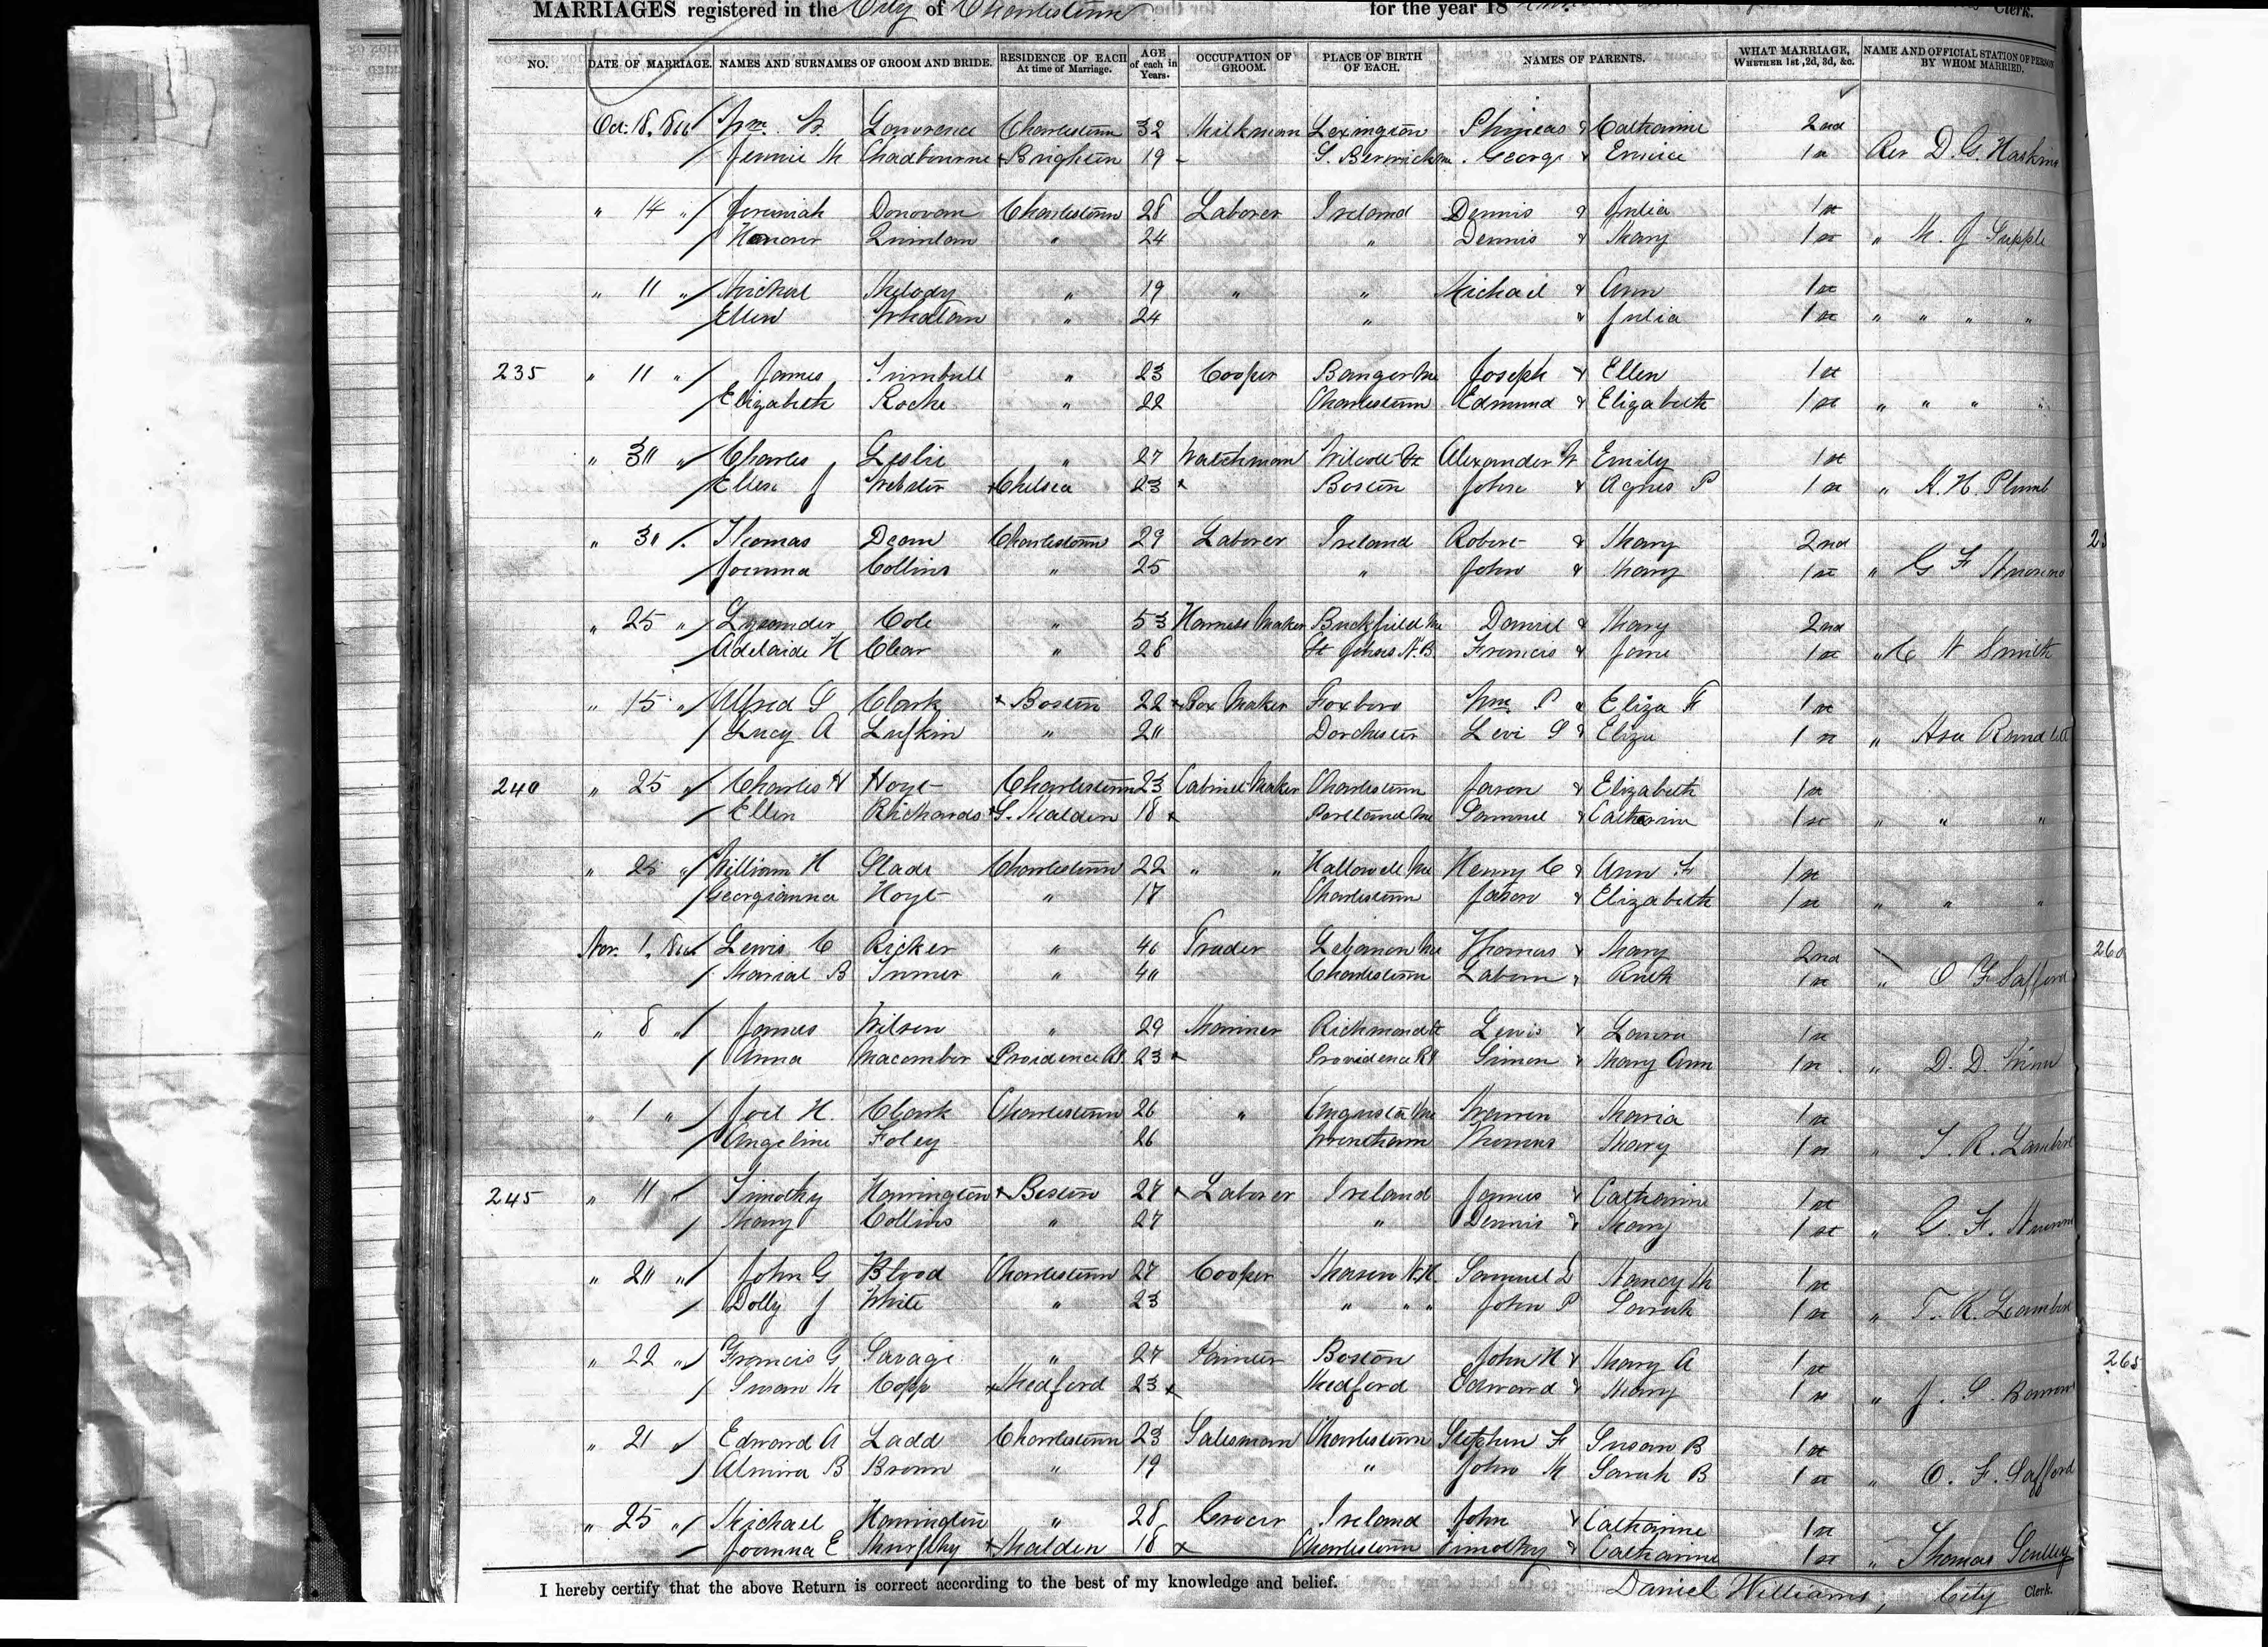 MARRIAGES registered in the City of Charlestown for the year 18 Clerk.
NO. DATE OF MARRIAGE. NAMES AND SURNAMES OF GROOM AND BRIDE. RESIDENCE OF EACH At time of Marriage. AGE of each in Years. OCCUPATION OF GROOM. PLACE OF BIRTH OF EACH. NAMES OF PARENTS. WHAT MARRIAGE, WHETHER 1st, 2d, 3d, &c. NAME AND OFFICIAL STATION OF PERSON BY WHOM MARRIED.
Oct. 18. 1866 Wm. W. Lawrence Charlestown 32 Milkman Lexington Phineas & Catharine 2nd
Jennie M Chadbourne Brighton 19 S. Berwick Me. George & 1st Rev D. G. Haskins
" 14 " Jeremiah Donovan Charlestown 28 Laborer Ireland Dennis & Julia 1st
Honour Quinlan " 24 " Dennis & Mary 1st " M. J Supple
" 11 " Michael Melody " 19 " " Michael & Ann 1st
Ellen Whalan " 24 " & Julia 1st " " " "
235 " 11 " James Turnbull " 23 Cooper Bangor Me Joseph & Ellen 1st
Elizabeth Roche " 22 Charlestown Edmund & Elizabeth 1st " " " "
" 30 " Charles Leslie " 27 Watchman Alexander W Emily 1st
Ellen J Webster Chelsea 23 Boston John & Agnes P 1st " H. H. Plumb
" 30 Thomas Dean Charlestown 29 Laborer Ireland Robert & Mary 2nd
Joanna Collins " 25 " John & Mary 1st " G F
" 25 " Lysander Cole " 53 Harness Maker Buckfield Me Daniel & Mary 2nd
Adelaide H Clear " 28 St Johns N.B. Francis & Jane 1st " C N Smith
" 15 " Alfred G Clark Boston 22 Box Maker Foxboro Wm. P & Eliza F 1st
Lucy A Lufkin " 20 Dorchester Levi S & Eliza 1st "
240 " 25 " Charles H Hoyt Charlestown 23 Cabinet Maker Charlestown Jason & Elizabeth 1st
Ellen Richards S. Malden 18 Portland Me Samuel & Catharine 1st " " "
" 25 " William H Slade Charlestown 22 " " Hallowell Me Henry C & Ann F 1st
Georgianna Hoyt " 17 Charlestown Jason & Elizabeth 1st " " "
Nov. 1. 1866 Lewis C Ricker " 46 Trader Lebanon Me Thomas & Mary 2nd
B Turner " 40 Charlestown & Ruth 1st " O F Safford
" 8 " James Wilson " 29 Mariner Lewis & Laura 1st
Anna Macomber Providence RI. 23 Providence RI Simon & Mary Ann 1st " D. D. Winn
" 1 " Joel H. Clark Charlestown 26 " Augusta Me Warren Maria 1st
Angeline Foley 26 Wrentham Thomas Mary 1st " T. R. Lambert
245 " 11 " Timothy Harrington Boston 27 Laborer Ireland James & Catharine 1st
Mary Collins " 27 " Dennis & Mary 1st " G. F.
" 20 " John G Blood Charlestown 27 Cooper Mason N.H. Samuel L Nancy M 1st
Dolly J White " 23 " " " John P Sarah 1st " T. R. Lambert
" 22 " Francis G Savage " 27 Painter Boston John H & Mary A 1st
Susan M Copp Medford 23 Medford Edward & Mary 1st " J. S. Barrows
" 21 Edward A Ladd Charlestown 23 Salesman Charlestown Stephen F Susan B 1st
Almira B Brown " 19 " John M Sarah B 1st " O. F. Safford
" 25 " Michael Harrington " 28 Grocer Ireland John & Catharine 1st
Joanna E Murphy Malden 18 Charlestown Timothy & Catharine 1st " Thomas Scully
I hereby certify that the above Return is correct according to the best of my knowledge and belief. Daniel Williams, City Clerk.
260
265